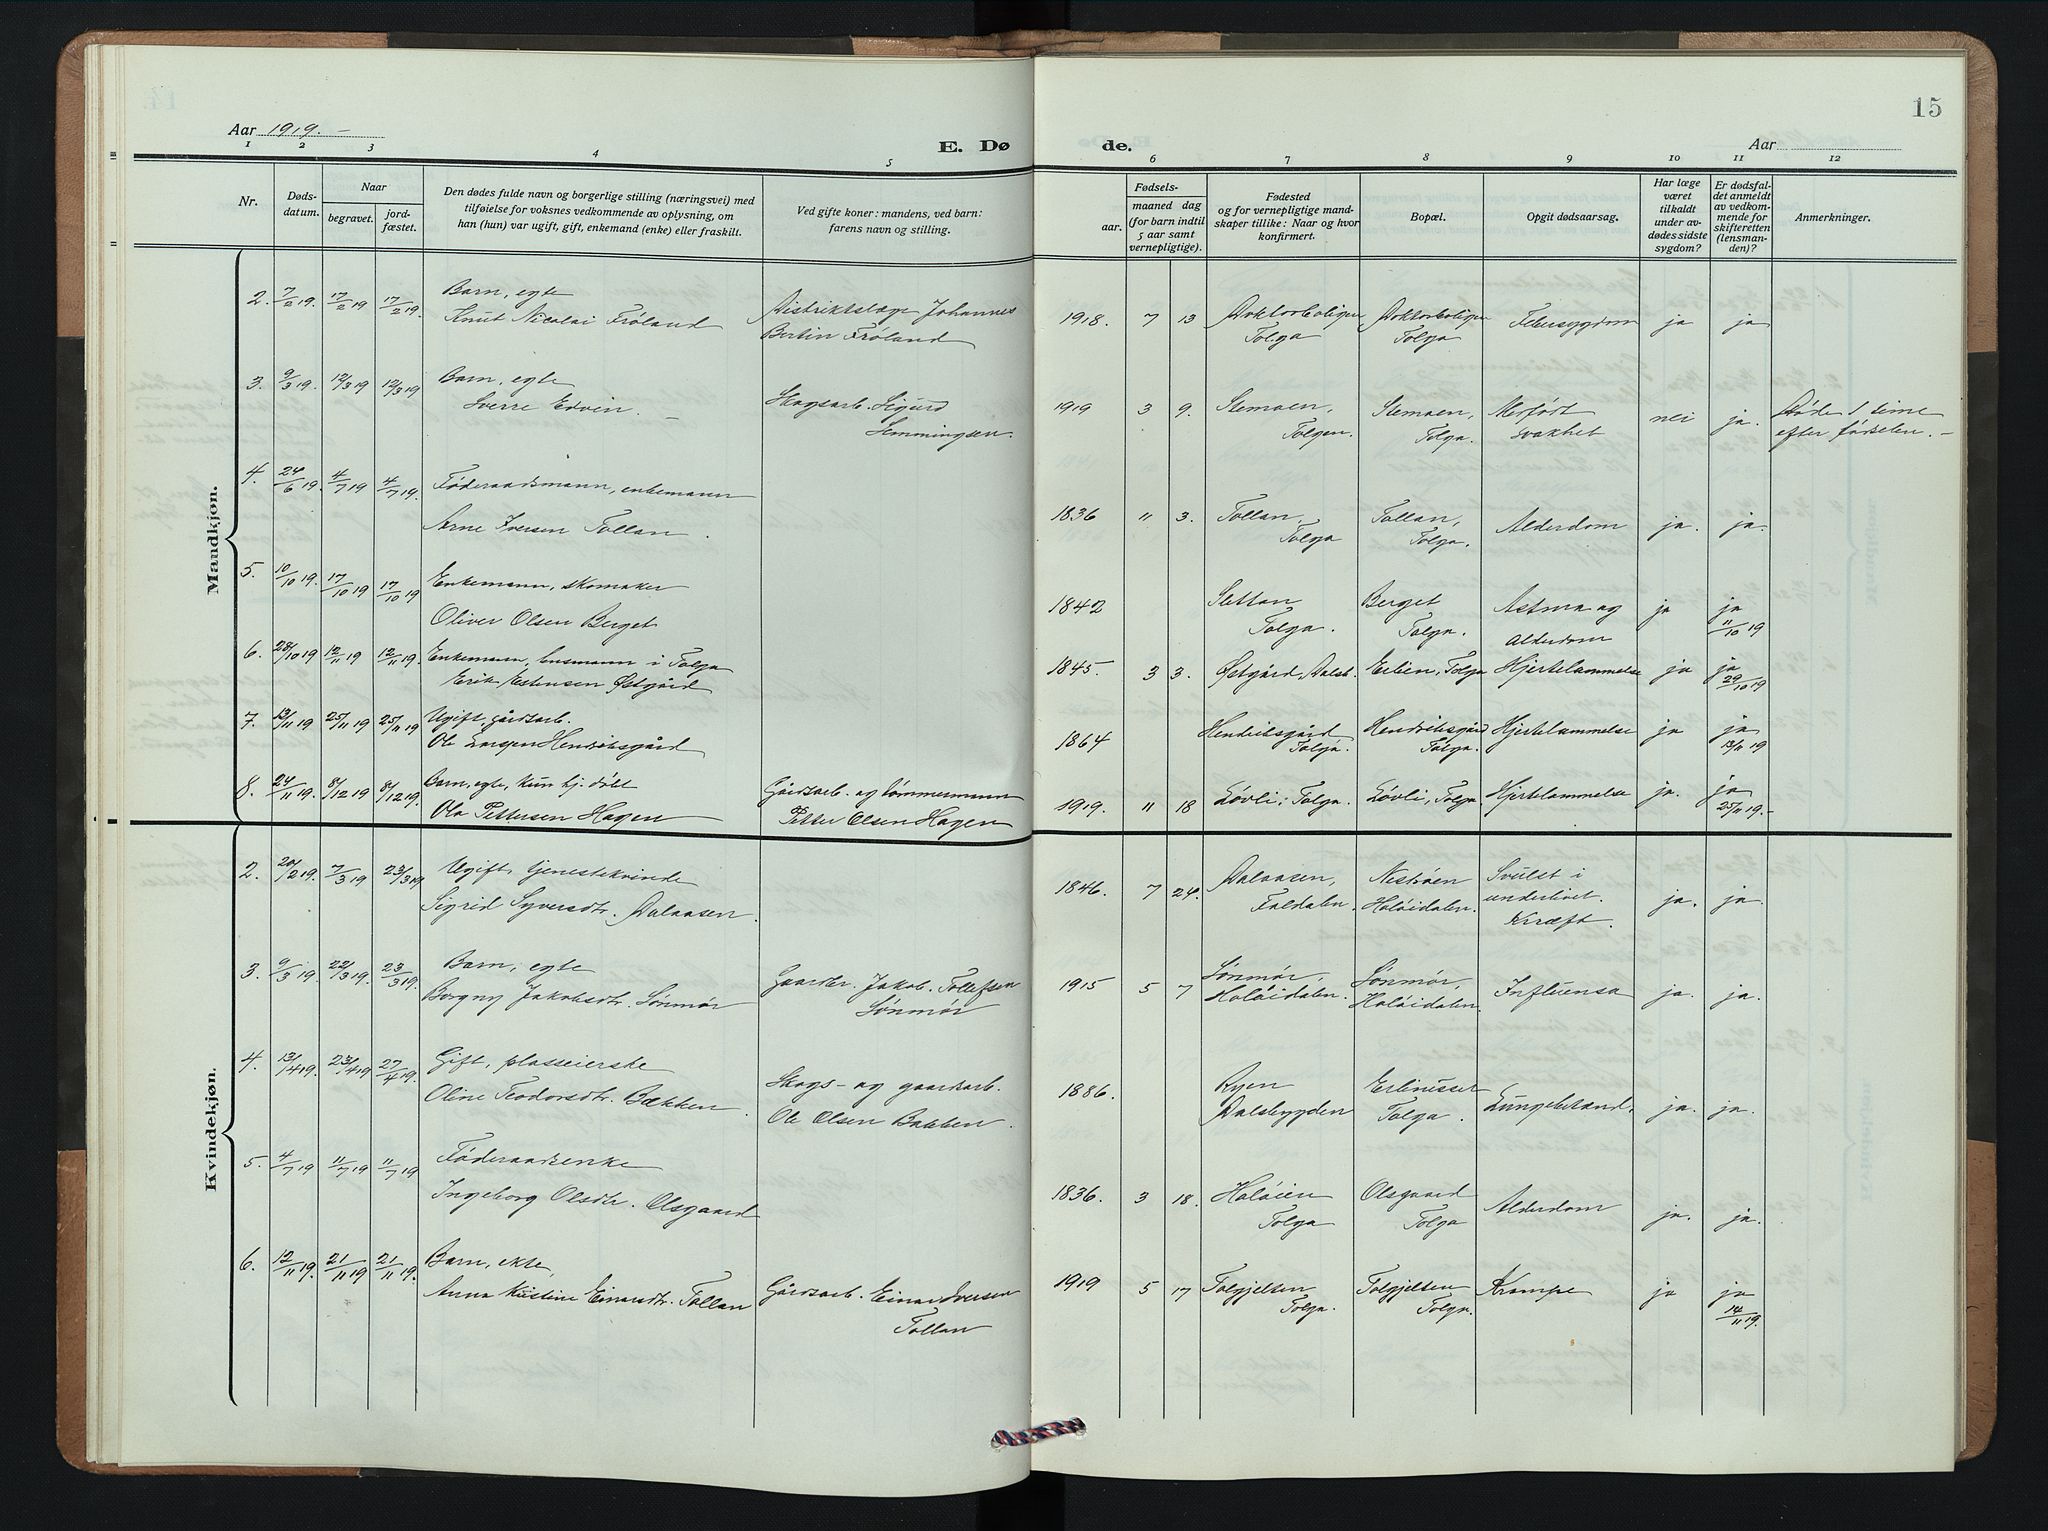 15
Aar 1919. –
E. Dø
de.
Aar
1 2 3 4 5 6 7 8 9 10 11 12
Nr.
Døds-
datum.
Naar
begravet.
jord-
fæstet.
Den dødes fulde navn og borgerlige stilling (næringsvei) med
tilføielse for voksnes vedkommende av oplysning, om
han (hun) var ugift, gift, enkemand (enke) eller fraskilt.
Ved gifte koner: mandens, ved barn:
farens navn og stilling.
Fødsels-
aar.
maaned dag
(for barn indtil
5 aar samt
vernepligtige).
Fødested
og for vernepligtige mand-
skaper tillike: Naar og hvor
konfirmert.
Bopæl.
Opgit dødsaarsag.
Har læge
været
tilkaldt
under av-
dødes sidste
sygdom?
Er dødsfal-
det anmeldt
av vedkom-
mende for
skifteretten
(lensman-
den)?
Anmerkninger.
Mandkjøn.
2. 7/2 19. 17/2 19 17/2 19.
Barn, egte
Knut Nicolai Frøland
Distriktslæge Johannes
Bertin Frøland
1918. 7 13
Doktorboligen
Tolga
Doktorboligen
Tolga
Febersygdom
ja ja
3. 9/3 19. 12/3 19 12/3 19
Barn, egte
Sverre Edvin. –
Skogsarb. Sigurd
Hemmingsen.
1919 3 9.
Stemoen,
Tolgen.
Stemoen,
Tolga.
Medfødt
svakhet
nei ja.
Døde 1 time
efter fødselen. –
4. 24/6 19. 4/7 19 4/7 19.
Føderaadsmann, enkemann
Arne Iversen Tollan.
1836 11 3.
Tollan,
Tolga
Tollan,
Tolga.
Alderdom
ja. ja.
5. 10/10 19. 17/10 19 17/10 19
Enkemann, skomaker
Oliver Olsen Berget
1842
Slettan
Tolga.
Berget
Tolga.
Astma og
alderdom
ja ja
11/10 19
6. 28/10 19 12/11 19 12/11 19.
Enkemann, lensmann i Tolga
Erik Estensen Østgård
1845. 3 3.
Østgård, Dalsb.
Erlien, Tolga
Hjertelammelse
ja ja
29/10 19
7. 13/11 19 25/11 19 25/11 19
Ugift, gårdsarb.
Ole Larsen Hendriksgård
1864
Hendriksgård
Tolga.
Hendriksgård
Tolga.
Hjertelammelse
ja ja
13/11 19
8. 24/11 19. 8/12 19 8/12 19.
Barn, egte, kun hj. døbt
Ola Pettersen Hagen
Gårdsarb. og tømmermann
Petter Olsen Hagen
1919. 11 18
Løvli, Tolga.
Løvli, Tolga
Hjertelammelse
ja. ja
25/11 19.-
Kvindekjøn.
2. 20/2 19. 7/3 19 23/3 19
Ugift, tjenestekvinde
Sigrid Syversdtr. Dalaasen.
1846. 7 24.
Dalaasen,
Faldalen.
Nestrøen
Holøidalen.
Svulst i
underlivet.
Kræft.
ja. ja.
3. 9/3 19 22/3 19. 23/3 19.
Barn, egte
Borgny Jakobsdtr. Sønmør
Gaardbr. Jakob. Tollefsen
Sønmør
1915 5 7
Sønmør,
Holøidalen.
Sønmør,
Holøidalen.
Influensa
ja. ja.
4. 13/4 19. 23/4 19 27/4 19.
Gift, plasseierske
Oline Teodorsdtr. Bækken.
Skogs- og gaardsarb.
Ole Olsen Bakken.
1886.
Ryen
Dalsbygden
Tolga.
Lungebetænd.
ja. ja.
5. 4/7 19 11/7 19 11/7 19
Føderaadsenke
Ingeborg Olsdtr. Olsgaard
1836. 3 18.
Holøien
Tolga
Olsgaard
Tolga
Alderdom
ja. ja.
6. 12/11 19. 21/11 19 21/11 19.
Barn, ekte,
Anna Kristine Einarsdtr. Tollan
Gårdsarb. Einar Iversen
Tollan
1919 5 17
Tolgjelten
Tolga.
Tolgjelten
Tolga.
Krampe
ja ja
14/11 19.